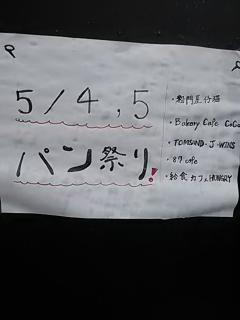 5/4,5
パン祭り!
・Bakery Cafe CoCo
・TOMSAND・J-WINS
・87 cafe
・給食カフェHUNGRY